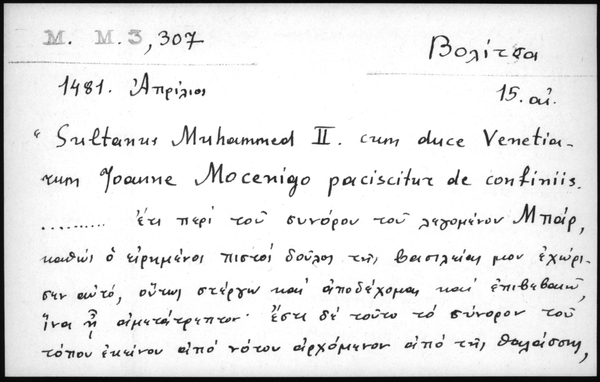 M. M. 3, 307
Βολίτσα
1481. Ἀπρίλιος
15. αἰ.
" Sultanus Muhammed II. cum duce Venetia-
rum Joanne Mocenigo paciscitur de confiniis.
.......... ἔτι περί τοῦ συνόρου τοῦ λεγομένου Μπάρ,
καθώς ὁ εἰρημένος πιστός δοῦλος τῆς βασιλείας μου ἐχώρι-
σεν αὐτό, οὕτως στέργω καί ἀποδέχομαι καί ἐπιβεβαιῶ,
ἵνα ᾖ ἀμετάτρεπτον· ἔστι δέ τοῦτο τό σύνορον τοῦ
τόπου ἐκείνου ἀπό νότου ἀρχόμενον ἀπό τῆς θαλάσσης,